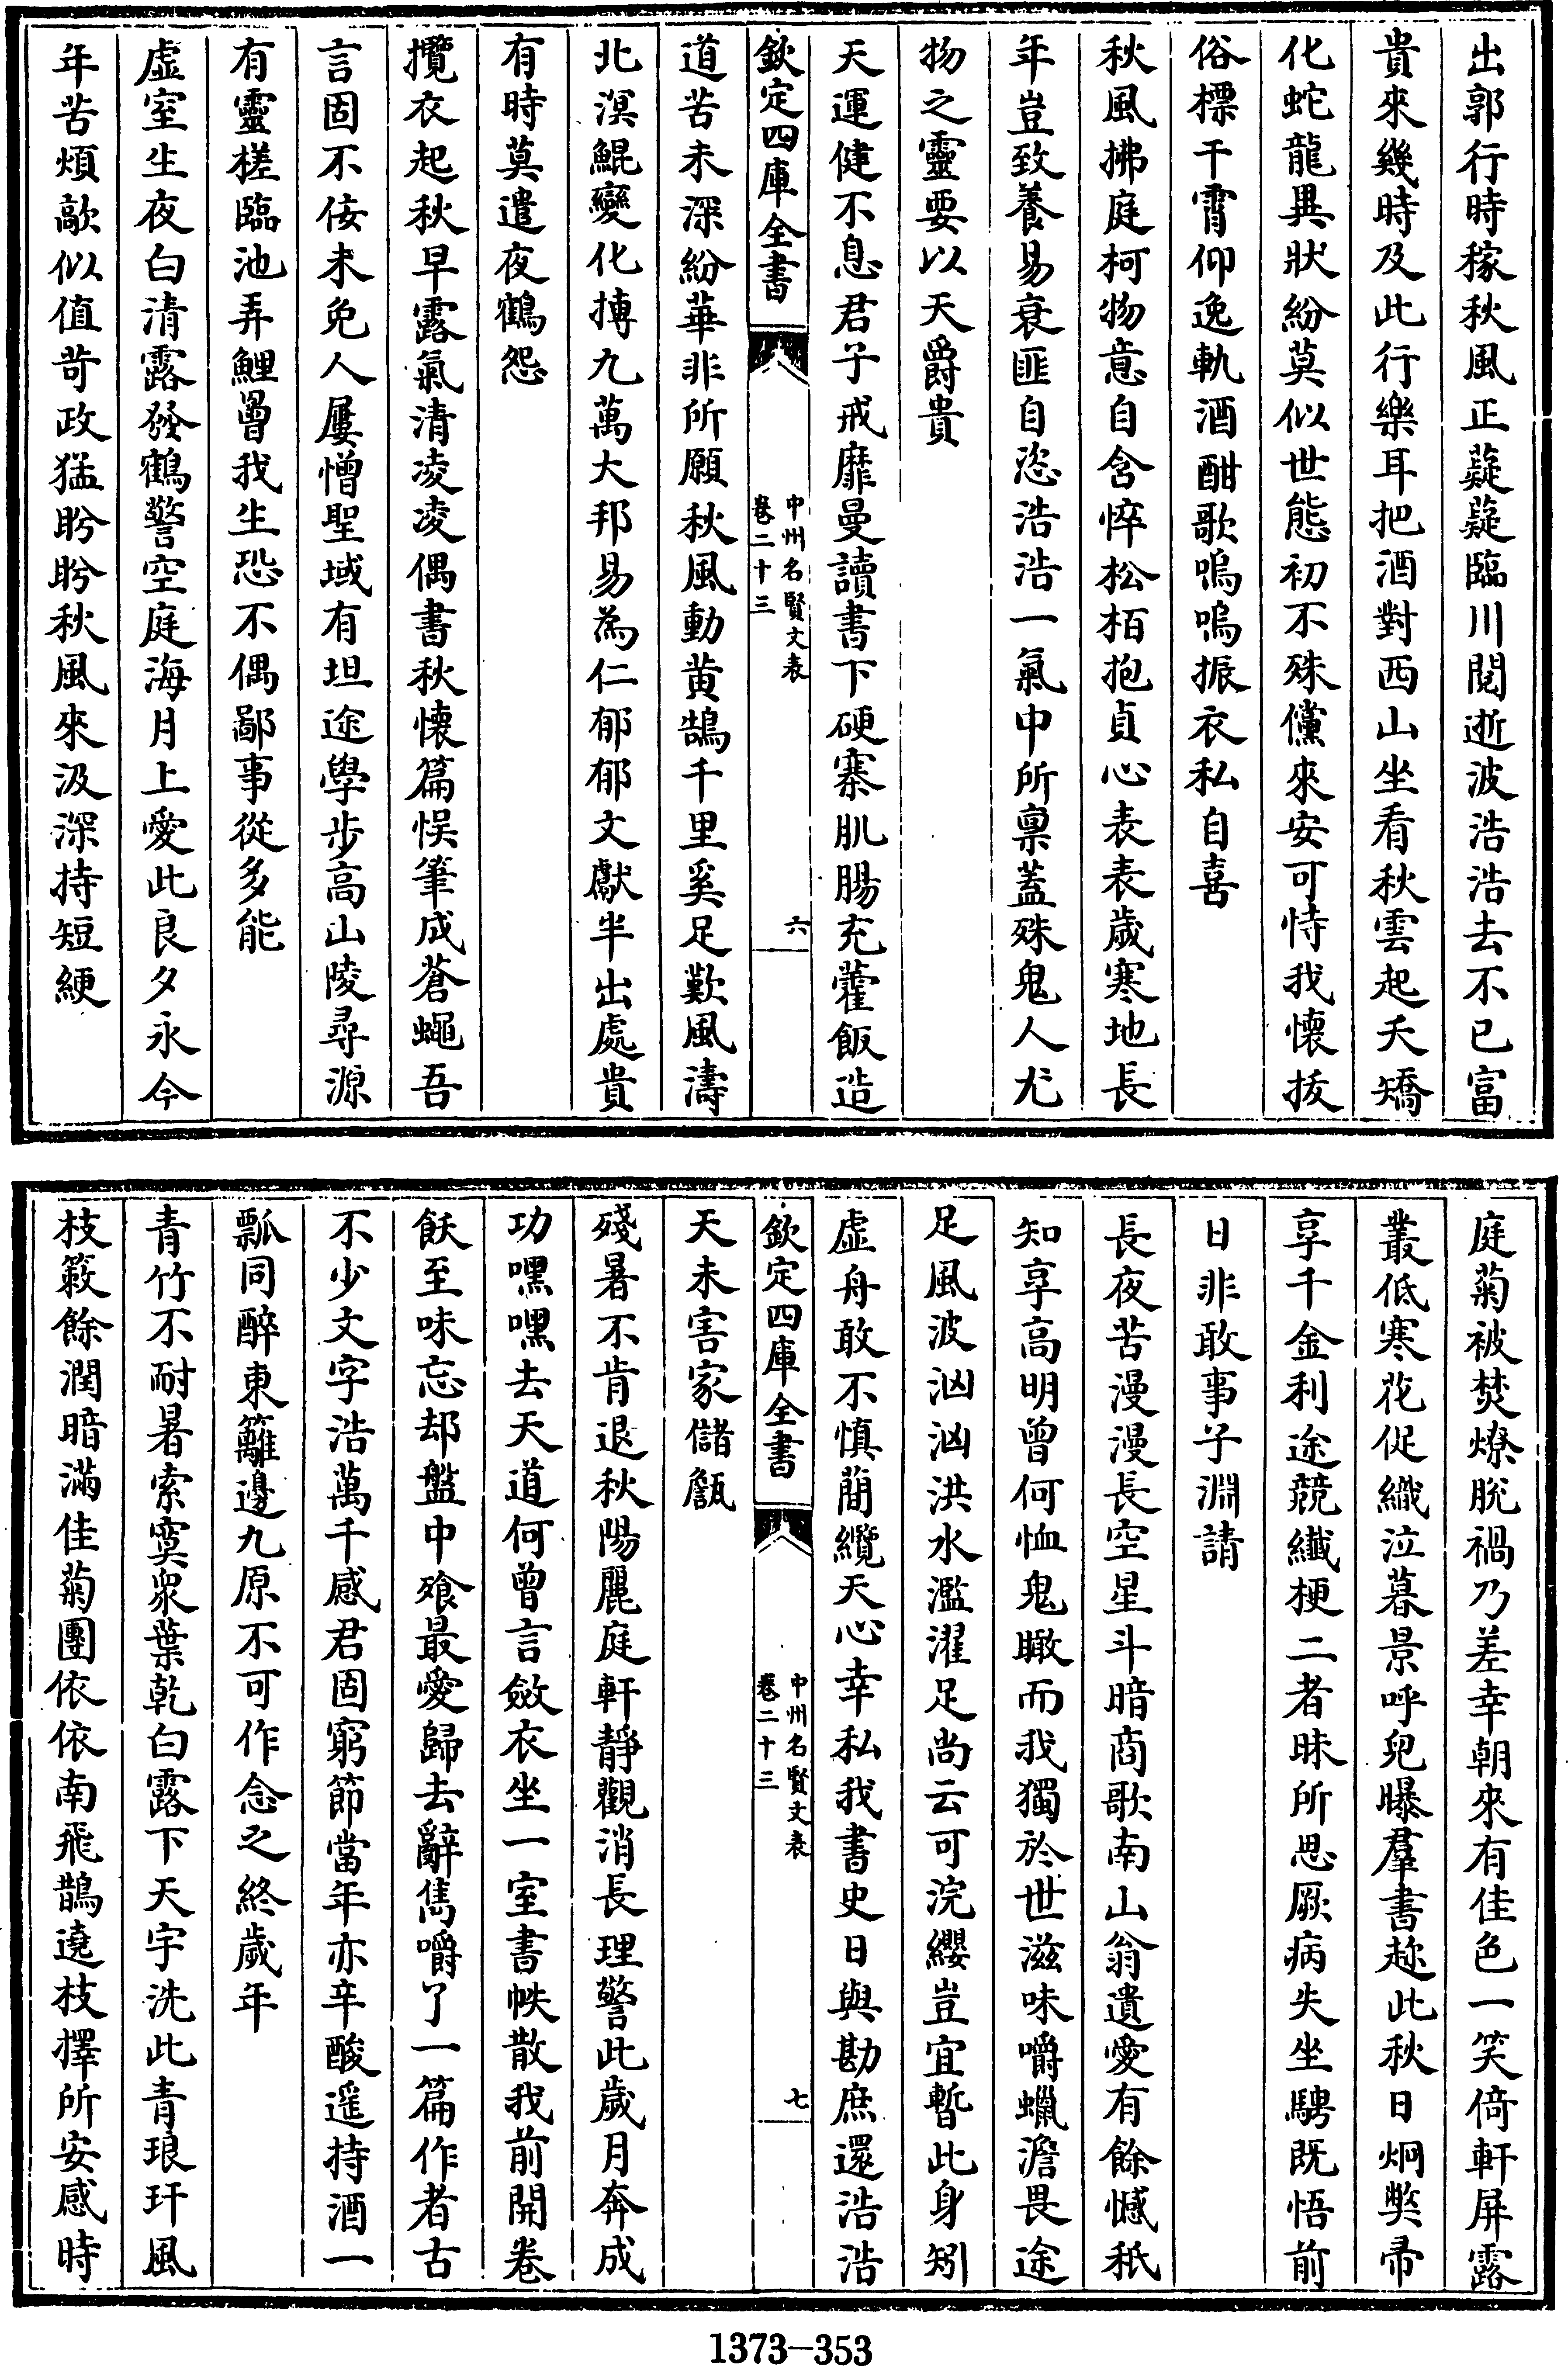 出郭行時稼秋風正薿薿臨川閱逝波浩浩去不已富
貴來幾時及此行樂耳把酒對西山坐看秋雲起夭矯
化蛇龍異狀紛莫似世態初不殊儻來安可恃我懷拔
俗標干霄仰逸軌酒酣歌嗚嗚振衣私自喜
秋風拂庭柯物意自含悴松栢抱貞心表表歲寒地長
年豈致養易衰匪自恣浩浩一氣中所稟蓋殊鬼人尤
物之靈要以天爵貴
天運健不息君子戒靡曼讀書下硬寨肌腸充藿飯造
欽定四庫全書
中州名賢文表
卷二十三
六
道苦未深紛華非所願秋風動黄鵠千里奚足歎風濤
北溟鯤變化摶九萬大邦易為仁郁郁文獻半出處貴
有時莫遣夜鶴怨
攬衣起秋早露氣清凌凌偶書秋懷篇悞筆成蒼蠅吾
言固不佞未免人屢憎聖域有坦途學步高山陵尋源
有靈槎臨池弄鯉罾我生恐不偶鄙事從多能
虛室生夜白清露發鶴警空庭海月上愛此良夕永今
年苦煩歊似值苛政猛盻盻秋風來汲深持短綆
庭菊被焚燎脫禍乃差幸朝來有佳色一笑倚軒屏露
叢低寒花促織泣暮景呼兒曝羣書趂此秋日炯獘帚
享千金利途競纖梗二者昧所思厥病失坐騁既悟前
日非敢事子淵請
長夜苦漫漫長空星斗暗商歌南山翁遺愛有餘憾秖
知享高明曾何恤鬼瞰而我獨於世滋味嚼蠟澹畏途
足風波汹汹洪水濫濯足尚云可浣纓豈宜暫此身矧
虛舟敢不慎蕳纜天心幸私我書史日與勘庶還浩浩
欽定四庫全書
中州名賢文表
卷二十三
七
天未害家儲甔
殘暑不肯退秋陽麗庭軒靜觀消長理警此歲月奔成
功嘿嘿去天道何曾言斂衣坐一室書帙散我前開卷
飫至味忘却盤中飱最愛歸去辭雋嚼了一篇作者古
不少文字浩萬千感君固窮節當年亦辛酸遥持酒一
瓢同醉東籬邊九原不可作念之終歲年
青竹不耐暑索寞衆葉乾白露下天宇洗此青琅玕風
枝簌餘潤暗滿佳菊團依依南飛鵲遶枝擇所安感時
1373-353